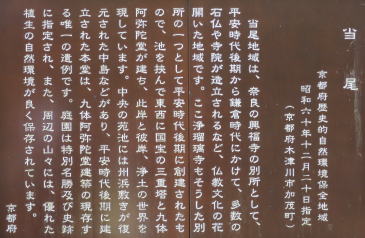 当尾
京都府歴史的自然環境保全地域
昭和六十年十二月二十日指定
(京都府木津川市加茂町)
当尾地域は、奈良の興福寺の別所として、
平安時代後期から鎌倉時代にかけて、多数の
石仏や寺院が造立されるなど、仏教文化の花
開いた地域です。ここ浄瑠璃寺もそうした別
所の一つとして平安時代後期に創建されたも
ので、池を挟んで東西に国宝の三重塔と九体
阿弥陀堂が建ち、此岸と彼岸、浄土の世界を
現しています。中央の苑池には州浜敷きが復
元された中島などがあり、平安時代後期に建
立された本堂は、九体阿弥陀堂建築の現存す
る唯一の遺例です。庭園は特別名勝及び史跡
に指定され、また、周辺の山々には、優れた
植生の自然環境が良く保存されています。
京都府